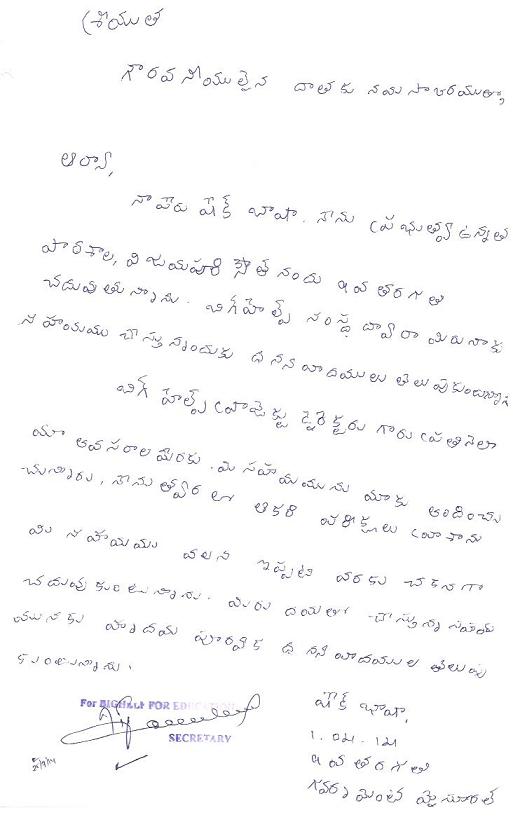 శ్రీయుత
గౌరవనీయులైన దాతకు నమస్కారములు,
ఆర్యా,
నా పేరు షేక్ బాషా. నేను ప్రభుత్వ ఉన్నత
పాఠశాల, విజయపురి సౌత్ నందు 9వ తరగతి
చదువుతున్నాను. బిగ్ హెల్ప్ సంస్థ ద్వారా మీరు నాకు
సహాయము చేస్తున్నందుకు ధన్యవాదములు తెలుపుకుంటున్నాను
బిగ్ హెల్ప్ ప్రాజెక్టు డైరెక్టరు గారు ప్రతినెలా
మా అవసరాల మేరకు. మీ సహాయమును మాకు అందించు
చున్నారు, నేను త్వరలో ఆఖరి పరీక్షలు వ్రాశాను
మీ సహాయము వలన ఇప్పటి వరకు చక్కగా
చదువుకుంటున్నాను. మీరు దయతో చేస్తున్న సహాయ
మునకు హృదయ పూర్వక ధన్యవాదములు తెలుపు
కుంటున్నాను.
For BIGHELP FOR EDUCATION
SECRETARY
షేక్ బాషా,
9వ తరగతి